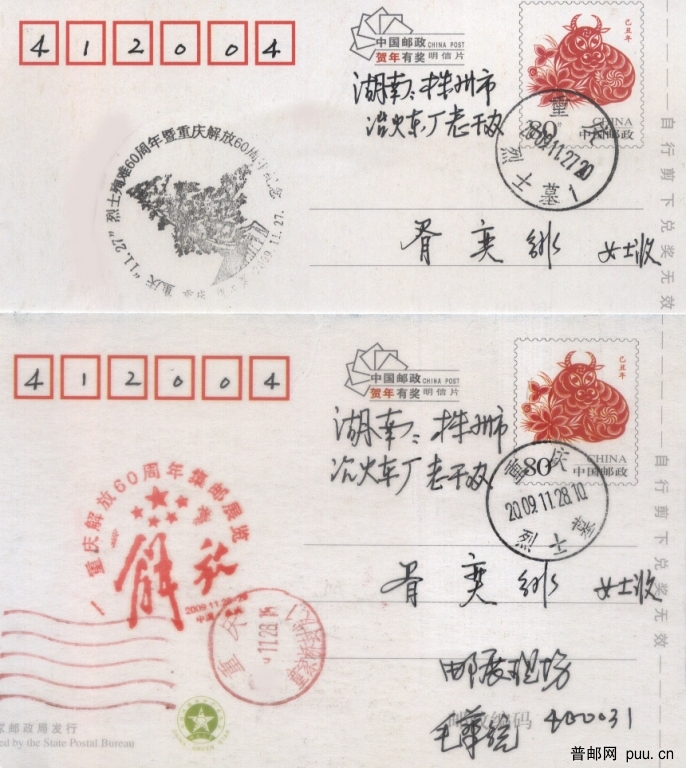 412004
中国邮政 CHINA POST
贺年有奖明信片
己丑年
湖南:株州市
冶火车厂老干办
80
CHINA
中国邮政
重庆
2009.11.27.20
烈士墓
1
重庆"11.27"烈士殉难60周年暨重庆解放60周年纪念
2009.11.27.
女士收
自行剪下兑奖无效
412004
中国邮政 CHINA POST
贺年有奖明信片
己丑年
湖南:株州市
冶火车厂老干办
80
CHINA
中国邮政
重庆
2009.11.28.10
烈士墓
重庆解放60周年集邮展览
解放
2009.11.28
中国·重庆
重庆
11.28.14
女士收
自行剪下兑奖无效
邮展现场
邮政编码 400031
家邮政局发行
ed by the State Postal Bureau
普邮网 puu.cn